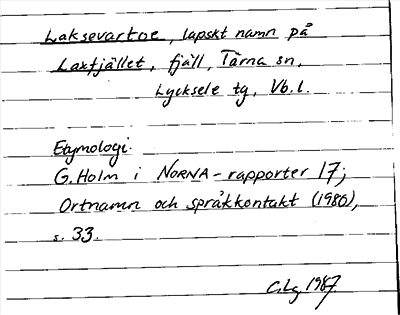 Laksevartoe, lapskt namn på
Laxfjället, fjäll, Tärna sn,
Lycksele tg, Vb.l.
Etymologi.
G. Holm i NORNA-rapporter 17;
Ortnamn och språkkontakt (1980),
s. 33.
C.Lg 1987